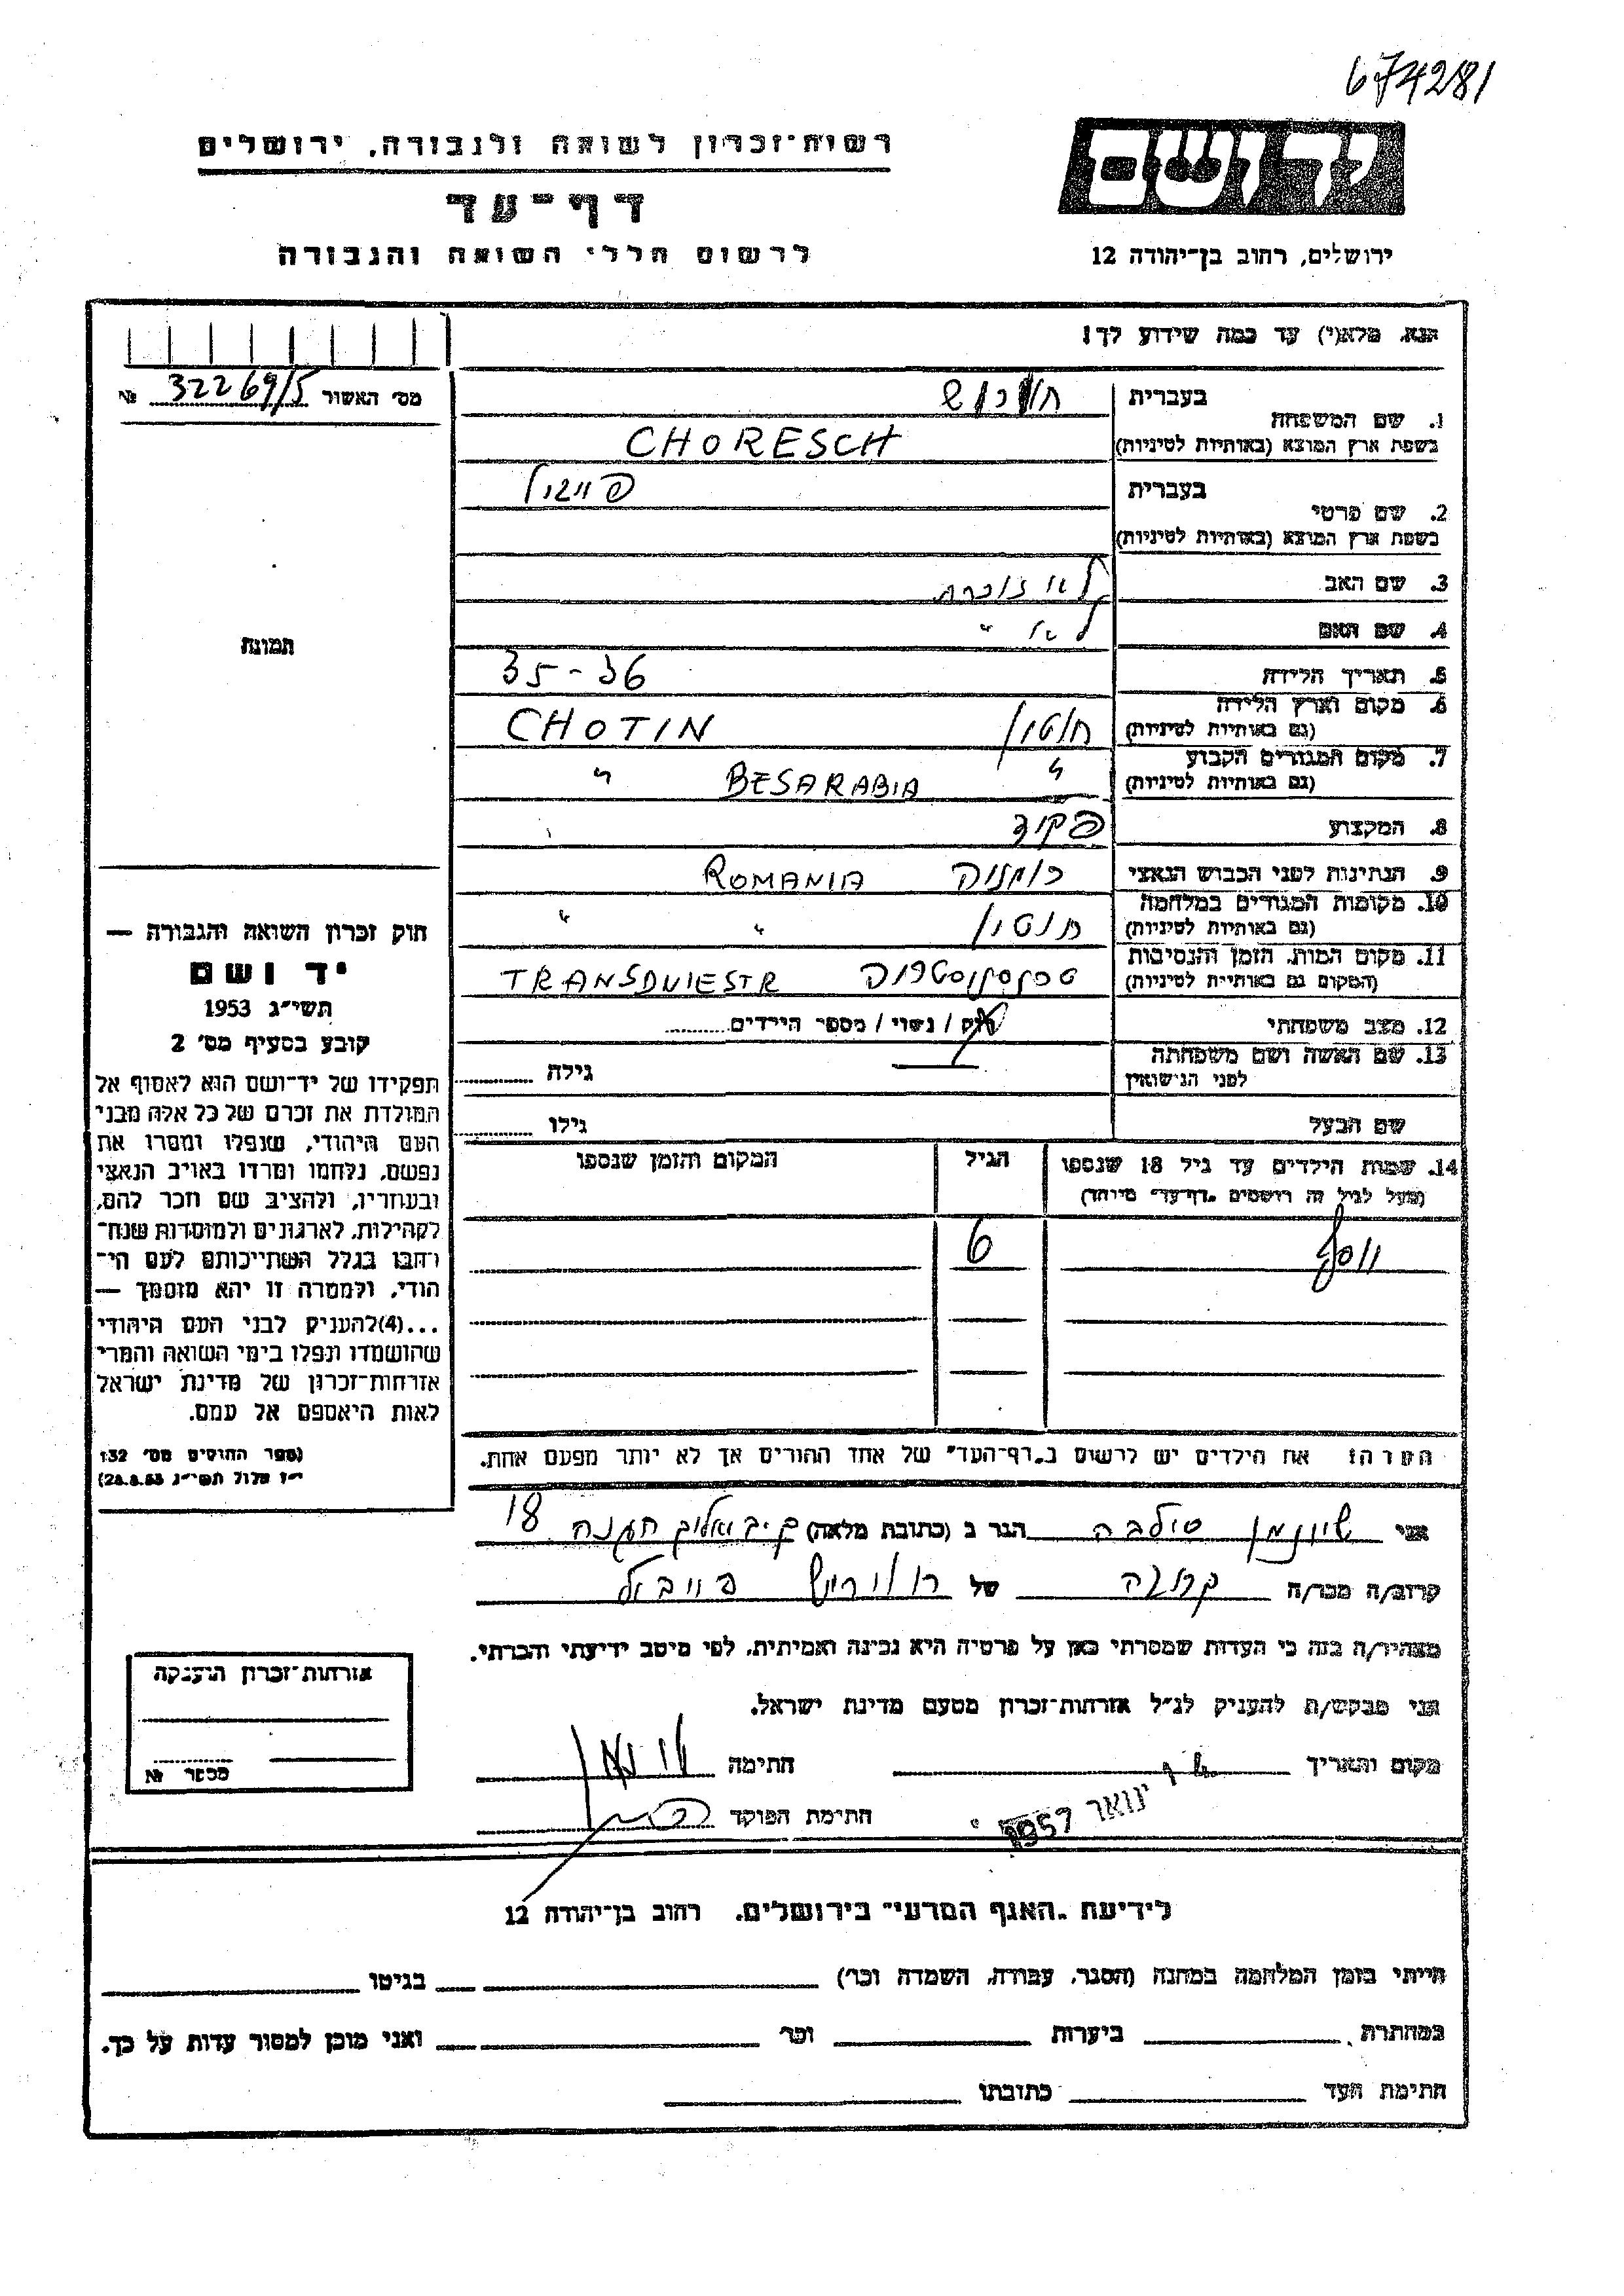 674281
רשות-זכרון לשואה ולגבורה, ירושלים
יד ושם
דף-עד
לרשום חללי השואה והגבורה
ירושלים, רחוב בן-יהודה 12
נא, מלא(י) עד כמה שידוע לך!
מס' האשור 32269/5 №
1. שם המשפחה
בעברית
בשפת ארץ המוצא (באותיות לטיניות) CHORESCH
2. שם פרטי
בעברית פייבול
בשפת ארץ המוצא (באותיות לטיניות)
3. שם האב לא זוכרת
4. שם האם לא "
תמונה
5. תאריך הלידה 35-36
6. מקום וארץ הלידה חוטין CHOTIN
(גם באותיות לטיניות)
7. מקום המגורים הקבוע " BESARABIA "
(גם באותיות לטיניות)
8. המקצוע פקיד
9. הנתינות לפני הכבוש הנאצי רומניה ROMANIA
10. מקומות המגורים במלחמה חוטין " "
(גם באותיות לטיניות)
11. מקום המות, הזמן והנסיבות טרנסניסטריה TRANSDNIESTR
(המקום גם באותיות לטיניות)
12. מצב משפחתי רוק / נשוי / מספר הילדים
13. שם האשה ושם משפחתה גילה
לפני הנישואין
שם הבעל גילו
14. שמות הילדים עד גיל 18 שנספו הגיל המקום והזמן שנספו
(מעל לגיל זה רושמים "דף-עד" מיוחד)
יוסף 6
הערה: את הילדים יש לרשום ב"דף-העד" של אחד ההורים אך לא יותר מפעם אחת.
חוק זכרון השואה והגבורה —
יד ושם
תשי"ג 1953
קובע בסעיף מס' 2
תפקידו של יד-ושם הוא לאסוף אל
המולדת את זכרם של כל אלה מבני
העם היהודי, שנפלו ומסרו את
נפשם, נלחמו ומרדו באויב הנאצי
ובעוזריו, ולהציב שם וזכר להם,
לקהילות, לארגונים ולמוסדות שנח-
רבו בגלל השתייכותם לעם הי-
הודי, ולמטרה זו יהא מוסמך —
...(4) להעניק לבני העם היהודי
שהושמדו ונפלו בימי השואה והמרי
אזרחות-זכרון של מדינת ישראל
לאות היאספם אל עמם.
(ספר החוקים מס' 132
י"ז אלול תשי"ג 28.8.53)
אני שיינמן סילביה הגר ב (כתובת מלאה) 18
קרוב/ה מכר/ה קרובה של חורש פייבול
מצהיר/ה בזה כי העדות שמסרתי כאן על פרטיה היא נכונה ואמיתית, לפי מיטב ידיעתי והכרתי.
אני מבקש/ת להעניק לנ"ל אזרחות-זכרון מטעם מדינת ישראל.
מקום ותאריך ינואר 1957 חתימה
חתימת הפוקד
אזרחות-זכרון הוענקה
מספר №
לידיעת "האגף המדעי" בירושלים, רחוב בן-יהודה 12
הייתי בזמן המלחמה במחנה (הסגר, עבודה, השמדה וכו') בגיטו
במחתרת ביערות וכו' ואני מוכן למסור עדות על כך.
חתימת העד כתובתו